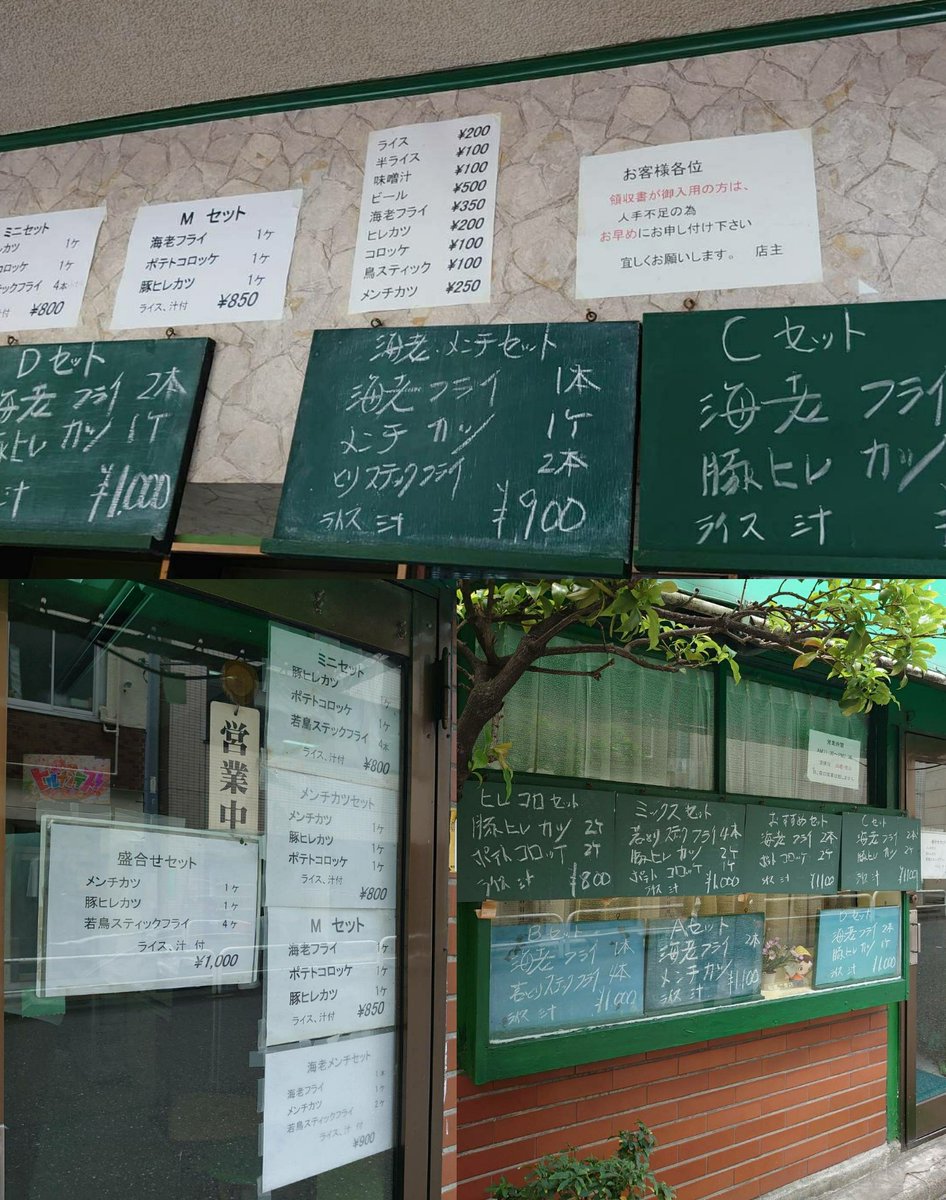 ミニセット
レカツ 1ケ
コロッケ 1ケ
ックフライ 4本
¥800
M セット
海老フライ 1ケ
ポテトコロッケ 1ケ
豚ヒレカツ 1ケ
ライス、汁付 ¥850
ライス ¥200
半ライス ¥100
味噌汁 ¥100
ビール ¥500
海老フライ ¥350
ヒレカツ ¥200
コロッケ ¥100
鳥スティック ¥100
メンチカツ ¥250
お客様各位
領収書が御入用の方は、
人手不足の為
お早めにお申し付け下さい
宜しくお願いします。 店主
Dセット
海老フライ 2本
豚ヒレカツ 1ケ
汁 ¥1.000
海老・メンチセット
海老フライ 1本
メンチカツ 1ケ
とりスティックフライ 2本
ライス 汁 ¥900
Cセット
海老フライ
豚ヒレカツ
ライス 汁
営業中
盛合せセット
メンチカツ 1ケ
豚ヒレカツ 1ケ
若鳥スティックフライ 4ケ
ライス、汁 付
¥1,000
ミニセット
豚ヒレカツ 1ケ
ポテトコロッケ 1ケ
若鳥ステックフライ 4本
ライス、汁付 ¥800
メンチカツセット
メンチカツ 1ケ
豚ヒレカツ 1ケ
ポテトコロッケ 1ケ
ライス、汁付
¥800
M セット
海老フライ 1ケ
ポテトコロッケ 1ケ
豚ヒレカツ 1ケ
ライス、汁付 ¥850
海老メンチセット
海老フライ 1本
メンチカツ 1ケ
若鳥スティックフライ 2ケ
ライス、汁 付
¥900
営業時間
ヒレコロセット
豚ヒレカツ 2ケ
ポテトコロッケ 2ケ
ライス 汁 ¥800
ミックスセット
若とりステックフライ 4本
豚ヒレカツ 2ケ
ポテトコロッケ 1ケ
ライス 汁 ¥1.000
おすすめセット
海老フライ 2本
ポテトコロッケ 2ケ
ライス 汁 ¥1100
Cセット
海老フライ 2本
豚ヒレカツ 2ケ
ライス 汁 ¥1.100
Bセット
海老フライ 1本
若とりステックフライ 4本
ライス 汁 ¥1.000
Aセット
海老フライ 2本
メンチカツ
ライス 汁 ¥1.100
Dセット
海老フライ 2本
豚ヒレカツ 1ケ
ライス 汁 ¥1.000